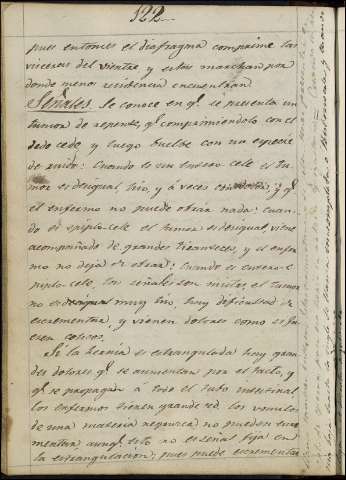 122
pues entonces el diafragma comprime las
visceras del vientre y estas marchan por
donde menos resistencia encuentran.
Señales. Se conoce en qe. se presenta un
tumor de repente, qe. comprimiendolo con el
dedo cede, y luego buelbe con na especie
de ruido: Cuando es un entero-cele el tu-
mor es desigual, frio, y á veces con dolor, y qe.
el enfermo no puede obrar nada: cuan-
do es epiplo-cele el tumor es desigual, viene
acompañado de grandes tiranteces, y el enfer-
mo no deja de obrar: Cuando es entero-e-
piplo-cele, las señales son mistas, el tumor
no es desigual muy frio, hay dificultad de
escrementar, y vienen dolores como si fu-
esen colicos.
Si la hernia es estrangulada hay gran-
des dolores qe. se aumentan por el tacto, y
qe. se propagan á todo el tubo intestinal
los enfermos tienen grande sed, los vomitos
de una materia negruzca no pueden escre-
mentar aunqe. esto no es señal fija en
la estrangulacion, pues puede escrementar